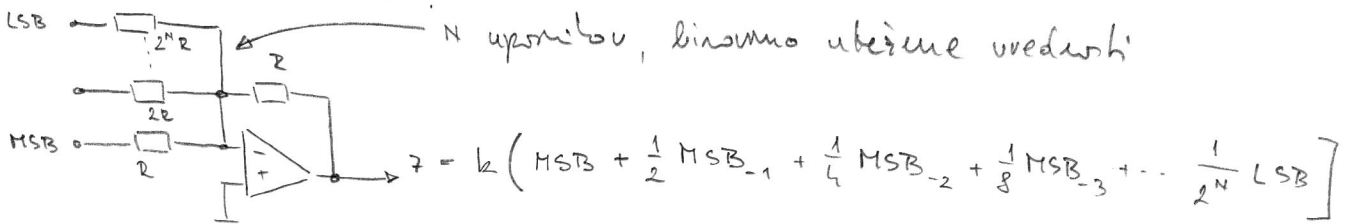 LSB
2ᴺR
N uporov, binarno utežene vrednosti
R
2R
MSB
R
-
+
7 = k ( MSB + 1/2 MSB₋₁ + 1/4 MSB₋₂ + 1/8 MSB₋₃ + .. 1/2ᴺ LSB ]